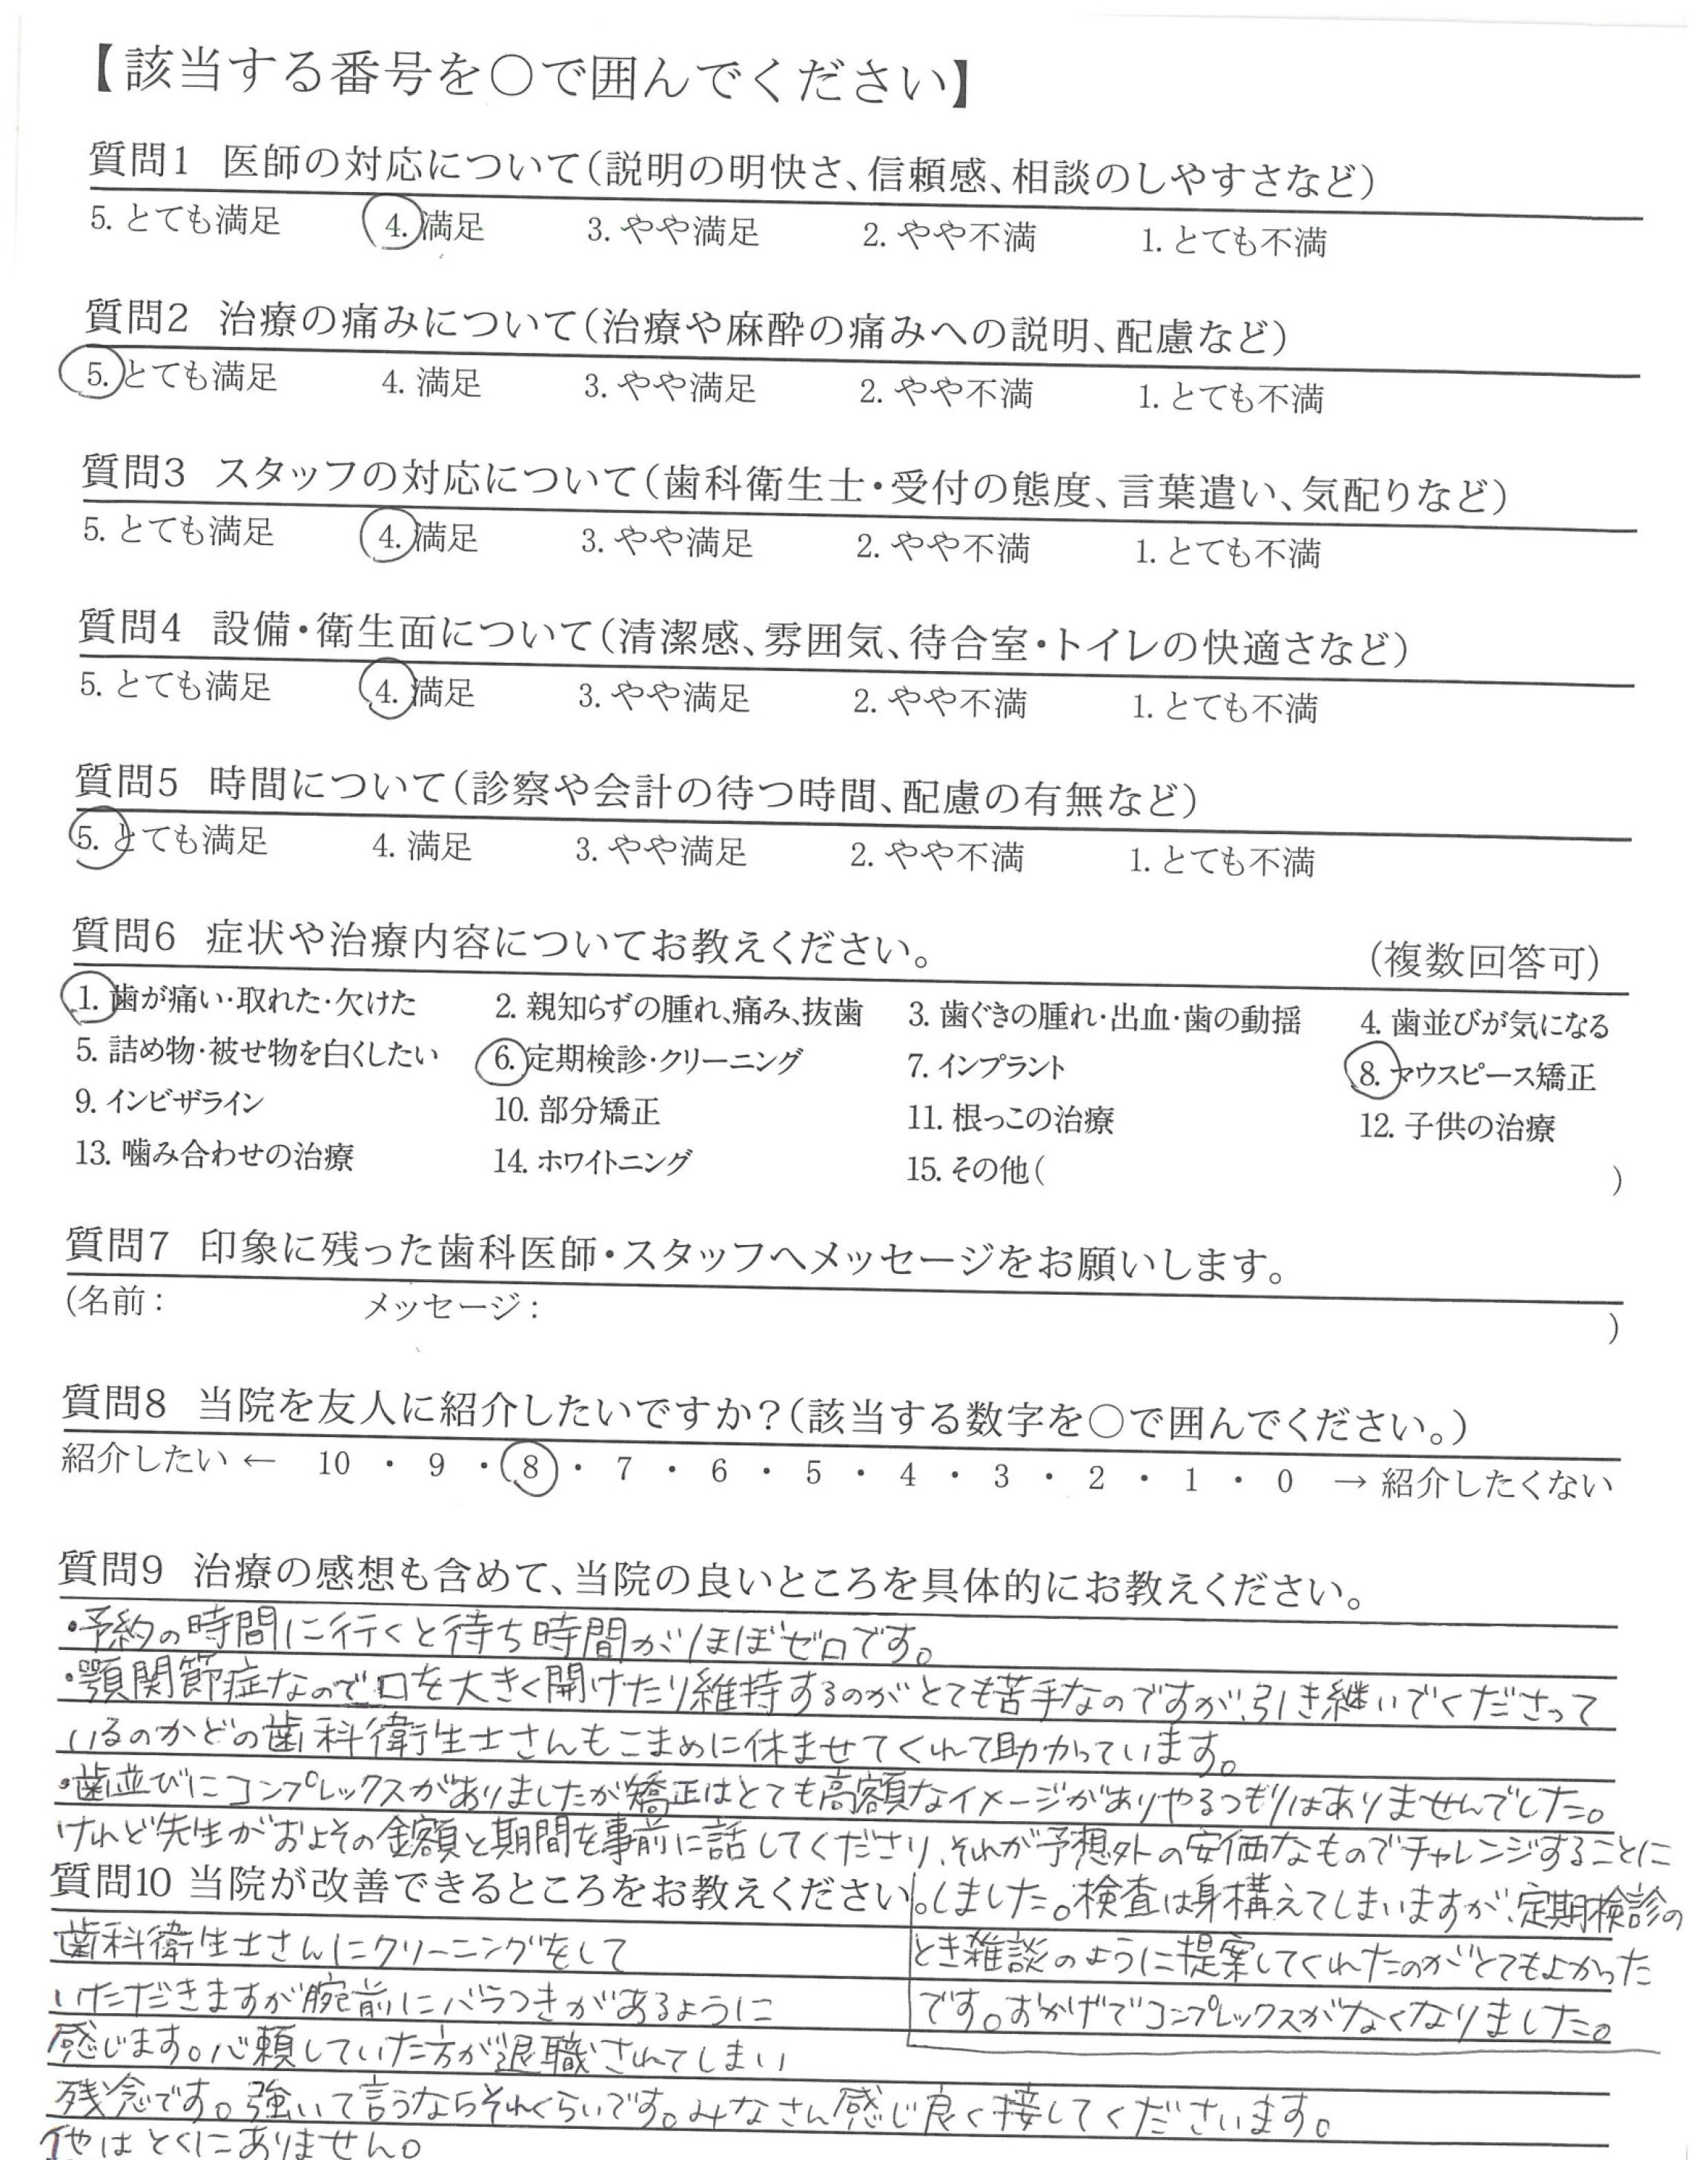 【該当する番号を〇で囲んでください】
質問1 医師の対応について(説明の明快さ、信頼感、相談のしやすさなど)
5. とても満足 4. 満足 3. やや満足 2. やや不満 1. とても不満
質問2 治療の痛みについて(治療や麻酔の痛みへの説明、配慮など)
5. とても満足 4. 満足 3. やや満足 2. やや不満 1. とても不満
質問3 スタッフの対応について(歯科衛生士・受付の態度、言葉遣い、気配りなど)
5. とても満足 4. 満足 3. やや満足 2. やや不満 1. とても不満
質問4 設備・衛生面について(清潔感、雰囲気、待合室・トイレの快適さなど)
5. とても満足 4. 満足 3. やや満足 2. やや不満 1. とても不満
質問5 時間について(診察や会計の待つ時間、配慮の有無など)
5. とても満足 4. 満足 3. やや満足 2. やや不満 1. とても不満
質問6 症状や治療内容についてお教えください。 (複数回答可)
1. 歯が痛い・取れた・欠けた 2. 親知らずの腫れ、痛み、抜歯 3. 歯ぐきの腫れ・出血・歯の動揺 4. 歯並びが気になる
5. 詰め物・被せ物を白くしたい 6. 定期検診・クリーニング 7. インプラント 8. マウスピース矯正
9. インビザライン 10. 部分矯正 11. 根っこの治療 12. 子供の治療
13. 噛み合わせの治療 14. ホワイトニング 15. その他( )
質問7 印象に残った歯科医師・スタッフへメッセージをお願いします。
(名前: メッセージ: )
質問8 当院を友人に紹介したいですか?(該当する数字を〇で囲んでください。)
紹介したい ← 10 ・ 9 ・ 8 ・ 7 ・ 6 ・ 5 ・ 4 ・ 3 ・ 2 ・ 1 ・ 0 → 紹介したくない
質問9 治療の感想も含めて、当院の良いところを具体的にお教えください。
・予約の時間に行くと待ち時間がほぼゼロです。
・顎関節症なので口を大きく開けたり維持するのがとても苦手なのですが、引き継いでくださって
いるのかどの歯科衛生士さんもこまめに休ませてくれて助かっています。
・歯並びにコンプレックスがありましたが矯正はとても高額なイメージがありやるつもりはありませんでした。
けれど先生がおよその金額と期間を事前に話してくださり、それが予想外の安価なものでチャレンジすることに
しました。検査は身構えてしまいますが、定期検診の
とき雑談のように提案してくれたのがとてもよかった
です。おかげでコンプレックスがなくなりました。
質問10 当院が改善できるところをお教えください。
歯科衛生士さんにクリーニングをして
いただきますが腕前にバラつきがあるように
感じます。心頼していた方が退職されてしまい
残念です。強いて言うならそれくらいです。みなさん感じ良く接してくださいます。
他はとくにありません。